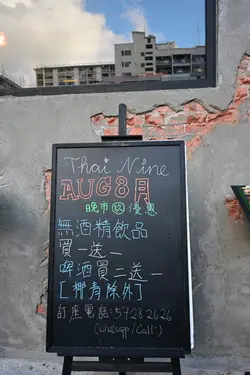 Thai Nine
AUG 8月
晚市 優惠
無酒精飲品
買一送一
啤酒買二送一
[椰青除外]
訂座電話:57282626
(whatsapp/Call:)